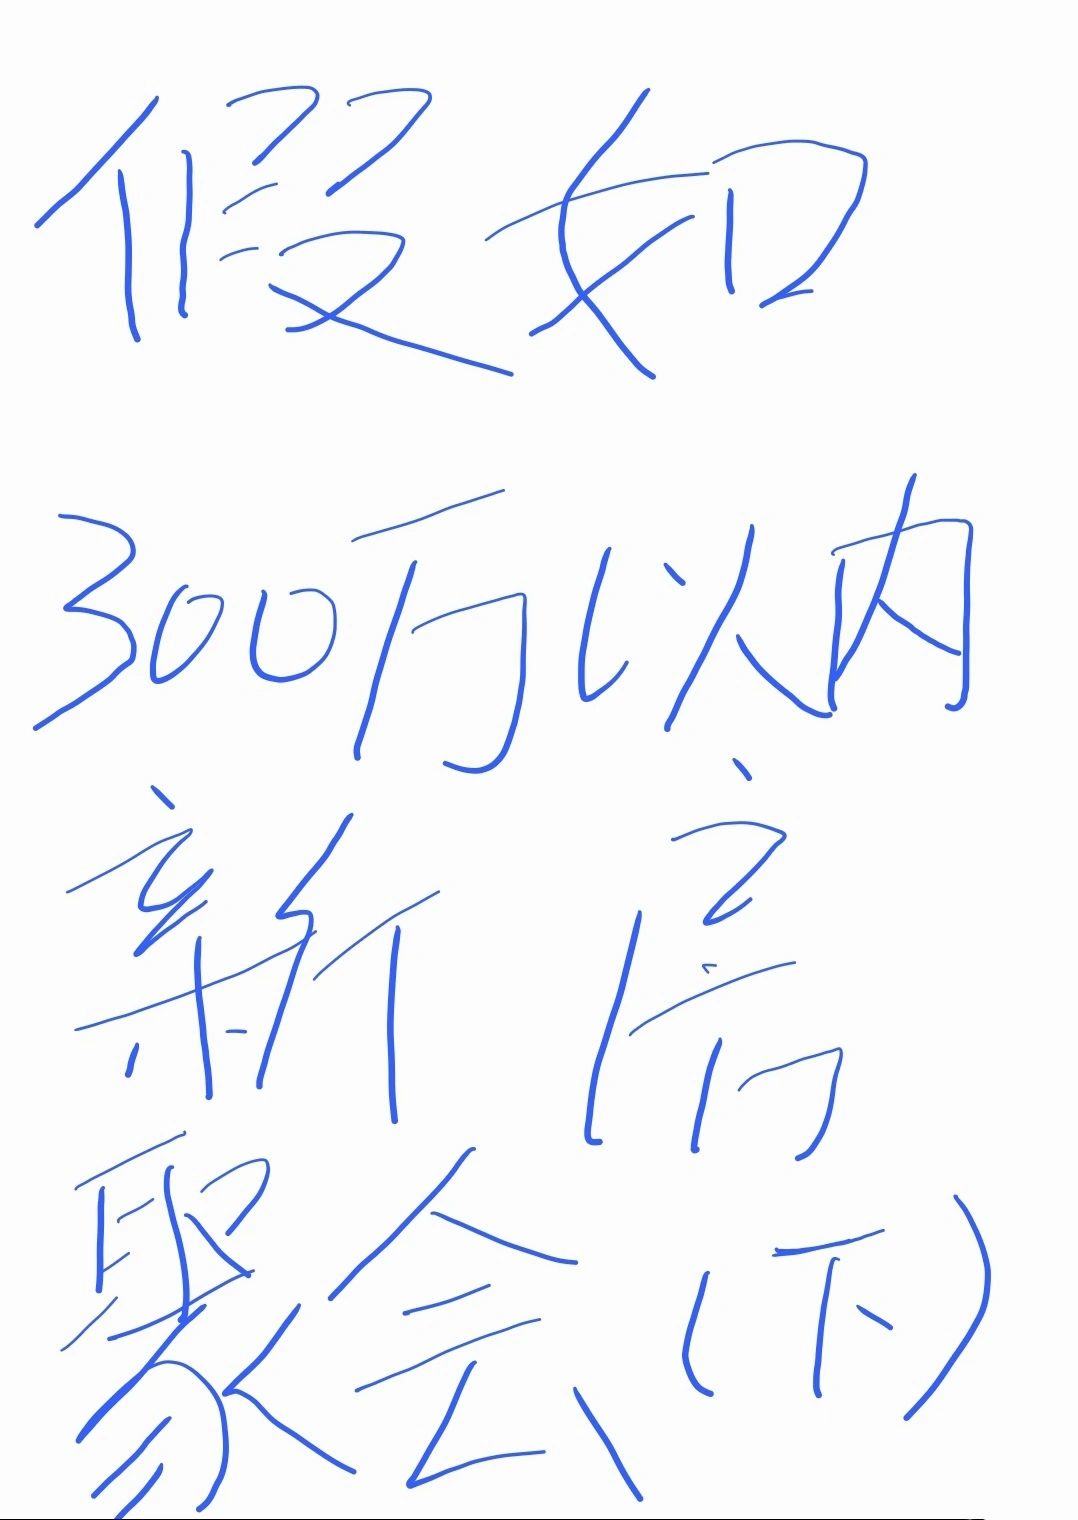 假如
300万以内
新
聚会(下)